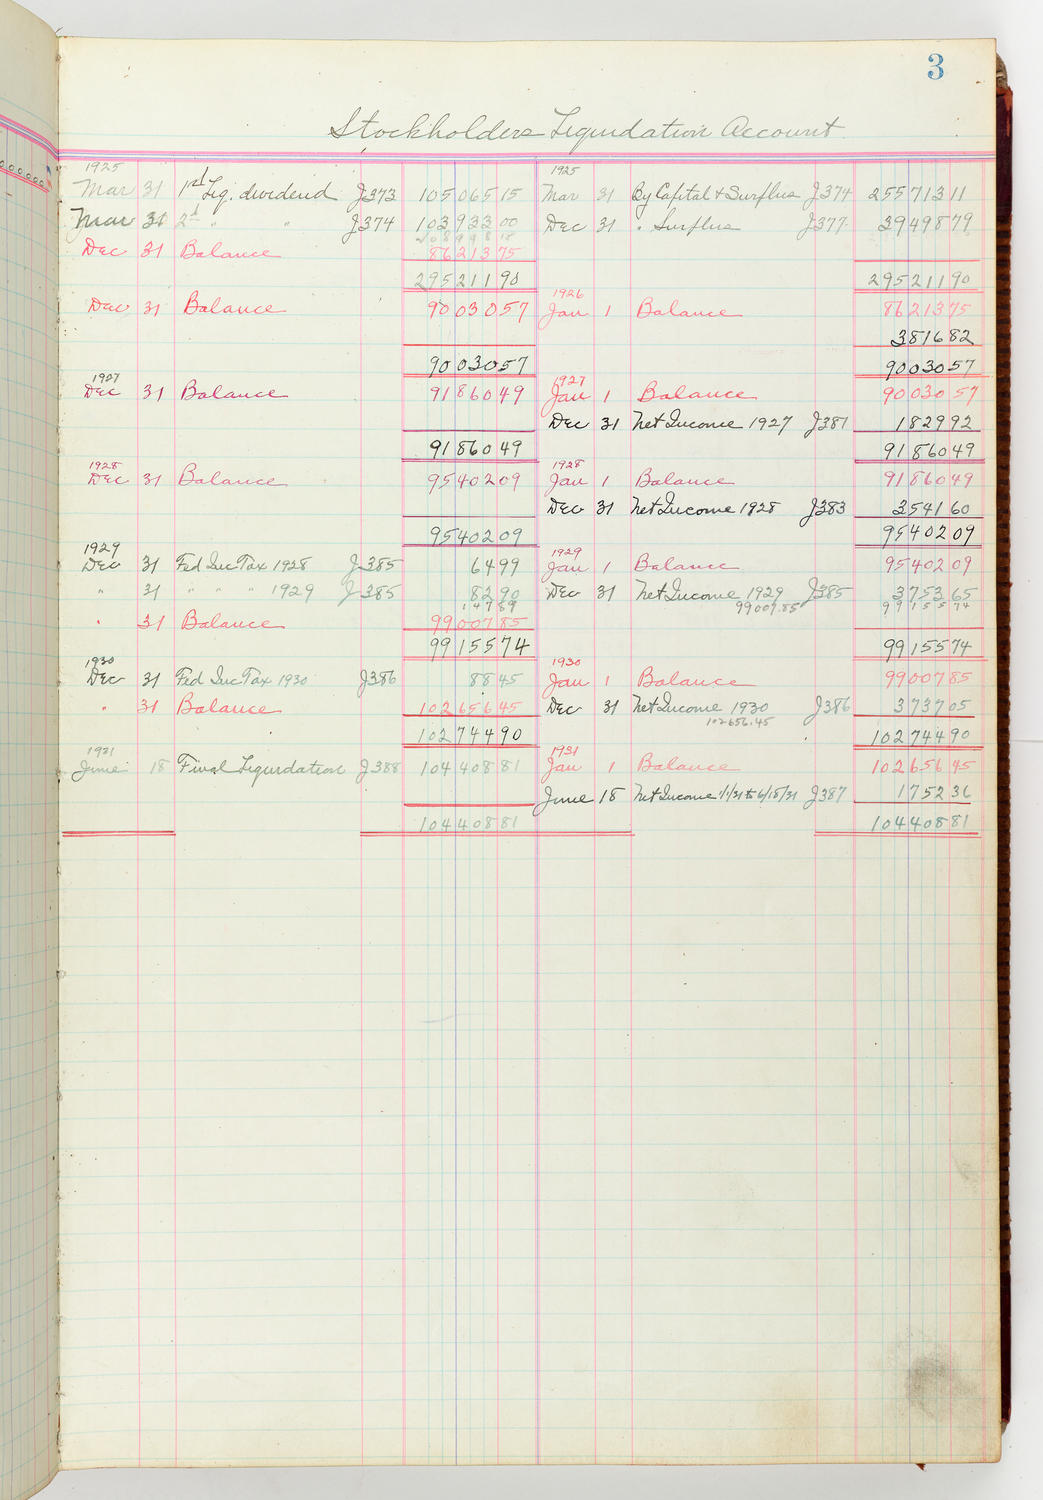 3
Stockholders Liquidation Account
1925 1925
Mar 31 1st Liq. dividend J373 105065 15 Mar 31 By Capital & Surplus J374 255713 11
Mar 31 2d " " J374 103933 00 Dec 31 " Surplus J377 39498 79
208998 15
Dec 31 Balance 86213 75
295211 90 295211 90
1926
Dec 31 Balance 90030 57 Jan 1 Balance 86213 75
3816 82
90030 57 90030 57
1927 1927
Dec 31 Balance 91860 49 Jan 1 Balance 90030 57
Dec 31 Net Income 1927 J381 1829 92
91860 49 91860 49
1928 1928
Dec 31 Balance 95402 09 Jan 1 Balance 91860 49
Dec 31 Net Income 1928 J383 3541 60
95402 09 95402 09
1929 1929
Dec 31 Fed Inc Tax 1928 J385 64 99 Jan 1 Balance 95402 09
" 31 " " " 1929 J385 82 90 Dec 31 Net Income 1929 J385 3753 65
147 89 99007.85 99155 74
" 31 Balance 99007 85
99155 74 99155 74
1930 1930
Dec 31 Fed Inc Tax 1930 J386 88 45 Jan 1 Balance 99007 85
" 31 Balance 102656 45 Dec 31 Net Income 1930 J386 3737 05
102656.45
102744 90 102744 90
1931 1931
June 18 Final Liquidation J388 104408 81 Jan 1 Balance 102656 45
June 18 Net Income 1/1/31 to 6/18/31 J387 1752 36
104408 81 104408 81